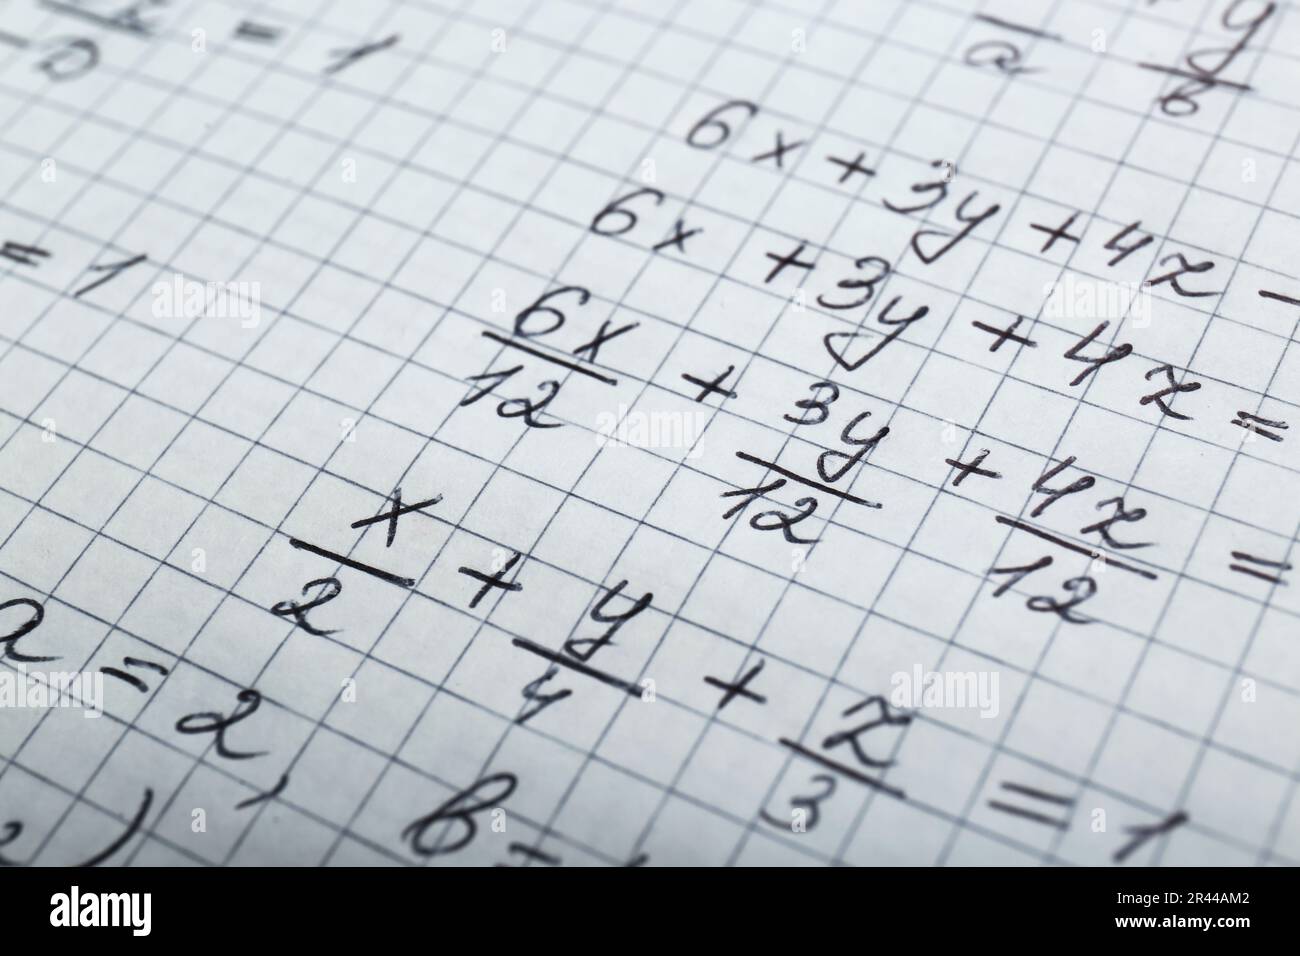 = 1
a
y
b
6x + 3y + 4z -
= 1
6x + 3y + 4z =
6x/12 + 3y/12 + 4z/12 =
x/2 + y/4 + z/3 = 1
a = 2, b =
)
alamy
Image ID: 2R44AM2
www.alamy.com